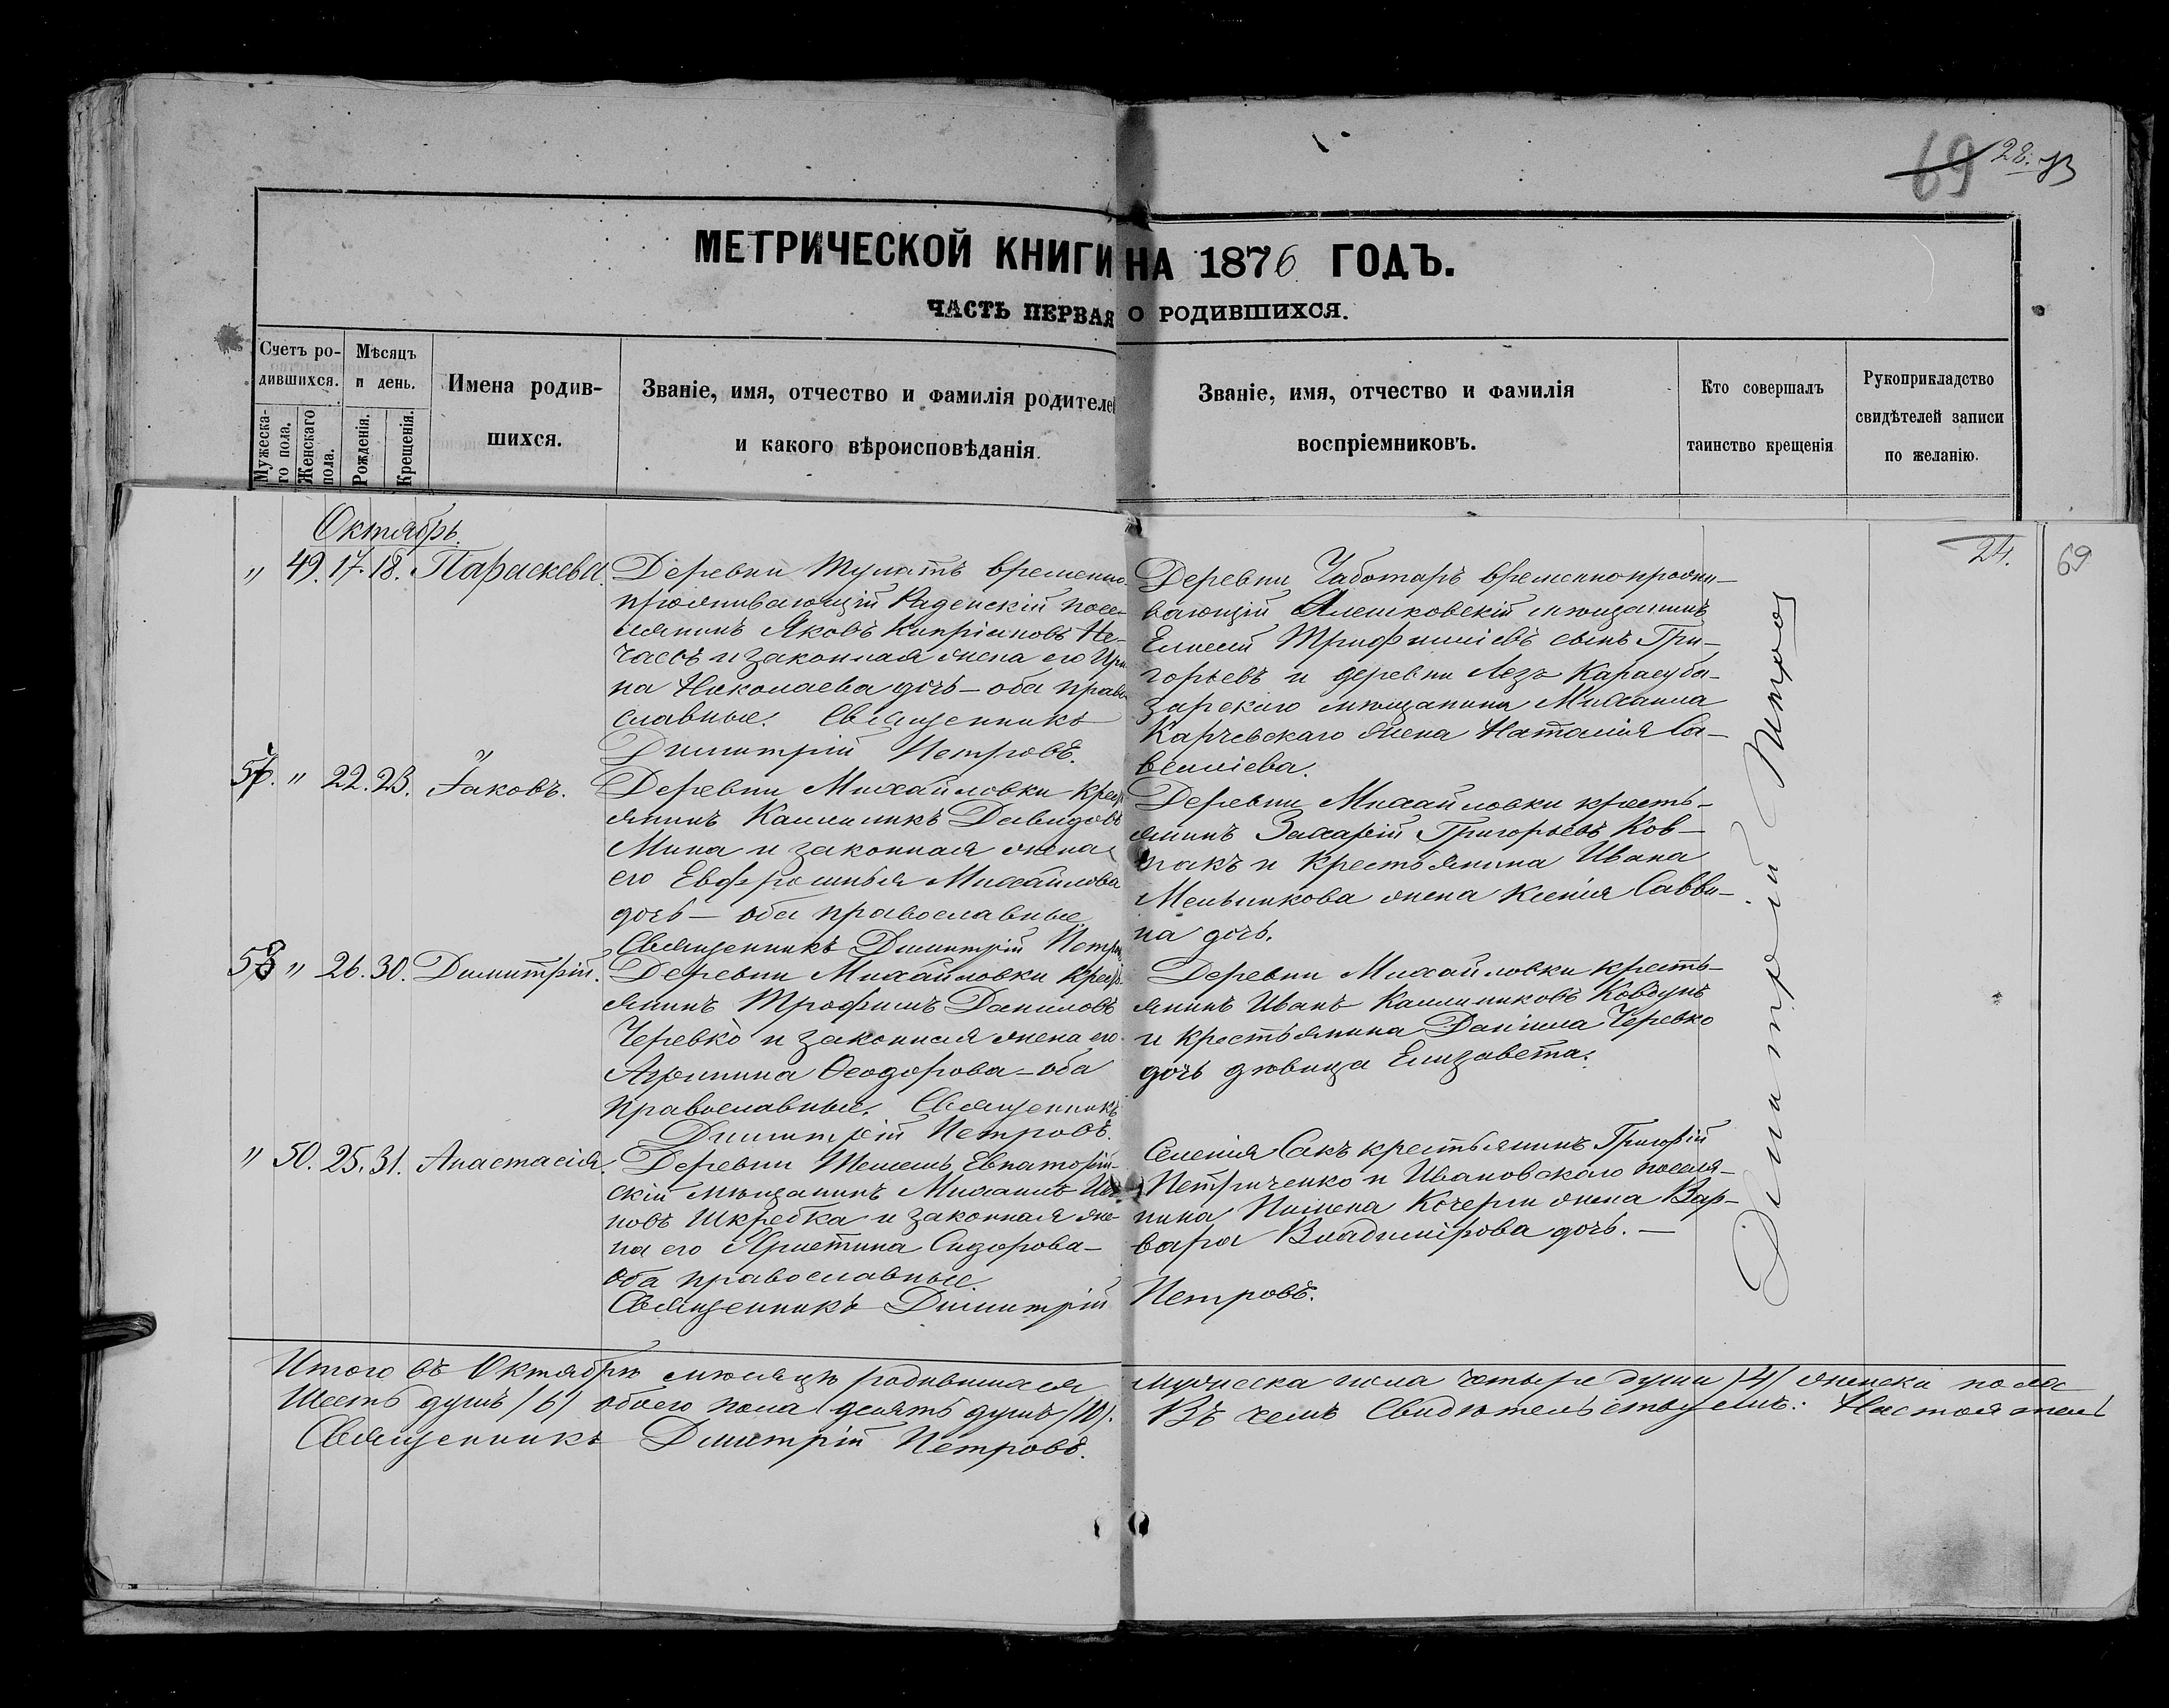 69 28.
МЕТРИЧЕСКОЙ КНИГИ НА 1876 ГОДЪ.
ЧАСТЬ ПЕРВАЯ О РОДИВШИХСЯ.
Счетъ ро-
дившихся.
Мужеска-
го пола.
Женскаго
пола.
Мѣсяцъ
и день.
Рожденія.
Крещенія.
Имена родив-
шихся.
Званіе, имя, отчество и фамилія родителей
и какого вѣроисповѣданія.
Званіе, имя, отчество и фамилія
воспріемниковъ.
Кто совершалъ
таинство крещенія
Рукоприкладство
свидѣтелей записи
по желанію.
24. 69
Октябрь.
" 49. 17. 18. Параскева.
Деревни Тупатъ временно
проживающій Раденскій посе-
лянинъ Яковъ Кипріановъ Не-
часъ и законная жена его Ири
на Николаева дочь – оба право
славные. Священникъ
Димитрій Петровъ.
Деревни Чаботаръ временнопрожи-
вающій Алешковскій мѣщанинъ
Елисей Трифилліевъ сынъ Гри-
горьевъ и деревни Лезъ Карасуба-
зарскаго мѣщанина Михаила
Карчевскаго жена Наталія Са-
велліева.
57. " 22. 23. Іаковъ.
Деревни Михайловки крест
янинъ Каллиникъ Давидовъ
Мина и законная жена
его Евфросинья Михайлова
дочь – оба православные
Священникъ Димитрій Петров
Деревни Михайловки кресть-
янинъ Захарій Григорьевъ Ков-
пакъ и крестьянина Ивана
Мельникова жена Ксенія Савви-
на дочь.
58 " 26. 30. Димитрій.
Деревни Михайловки Крест
янинъ Трофимъ Даниловъ
Черевко и законная жена его
Агриппина Ѳеодорова – оба
православные. Священникъ
Димитрій Петровъ.
Деревни Михайловки кресть-
янинъ Иванъ Каллиниковъ Ковтунъ
и крестьянина Даніила Черевко
дочь дѣвица Елизавета.
" 50. 25. 31. Анастасія.
Деревни Тешешъ, Евпаторій-
скій мѣщанинъ Михаилъ Ива
новъ Шкребка и законная же-
на его Христина Сидорова –
оба православные
Священникъ Димитрій Петровъ.
Селенія Сакъ крестьянинъ Григорій
Петриченко и Ивановскаго поселя-
нина Пимена Кочерги жена Вар-
вара Владимірова дочь. –
Димитрій Петров
Итого въ Октябрѣ мѣсяцѣ родившихся мужеска пола четыре души /4/ женска пола
Шесть душъ /6/ обоего пола десять душъ /10/. Въ чемъ Свидѣтельствуемъ: Настоятель
Священникъ Димитрій Петровъ.